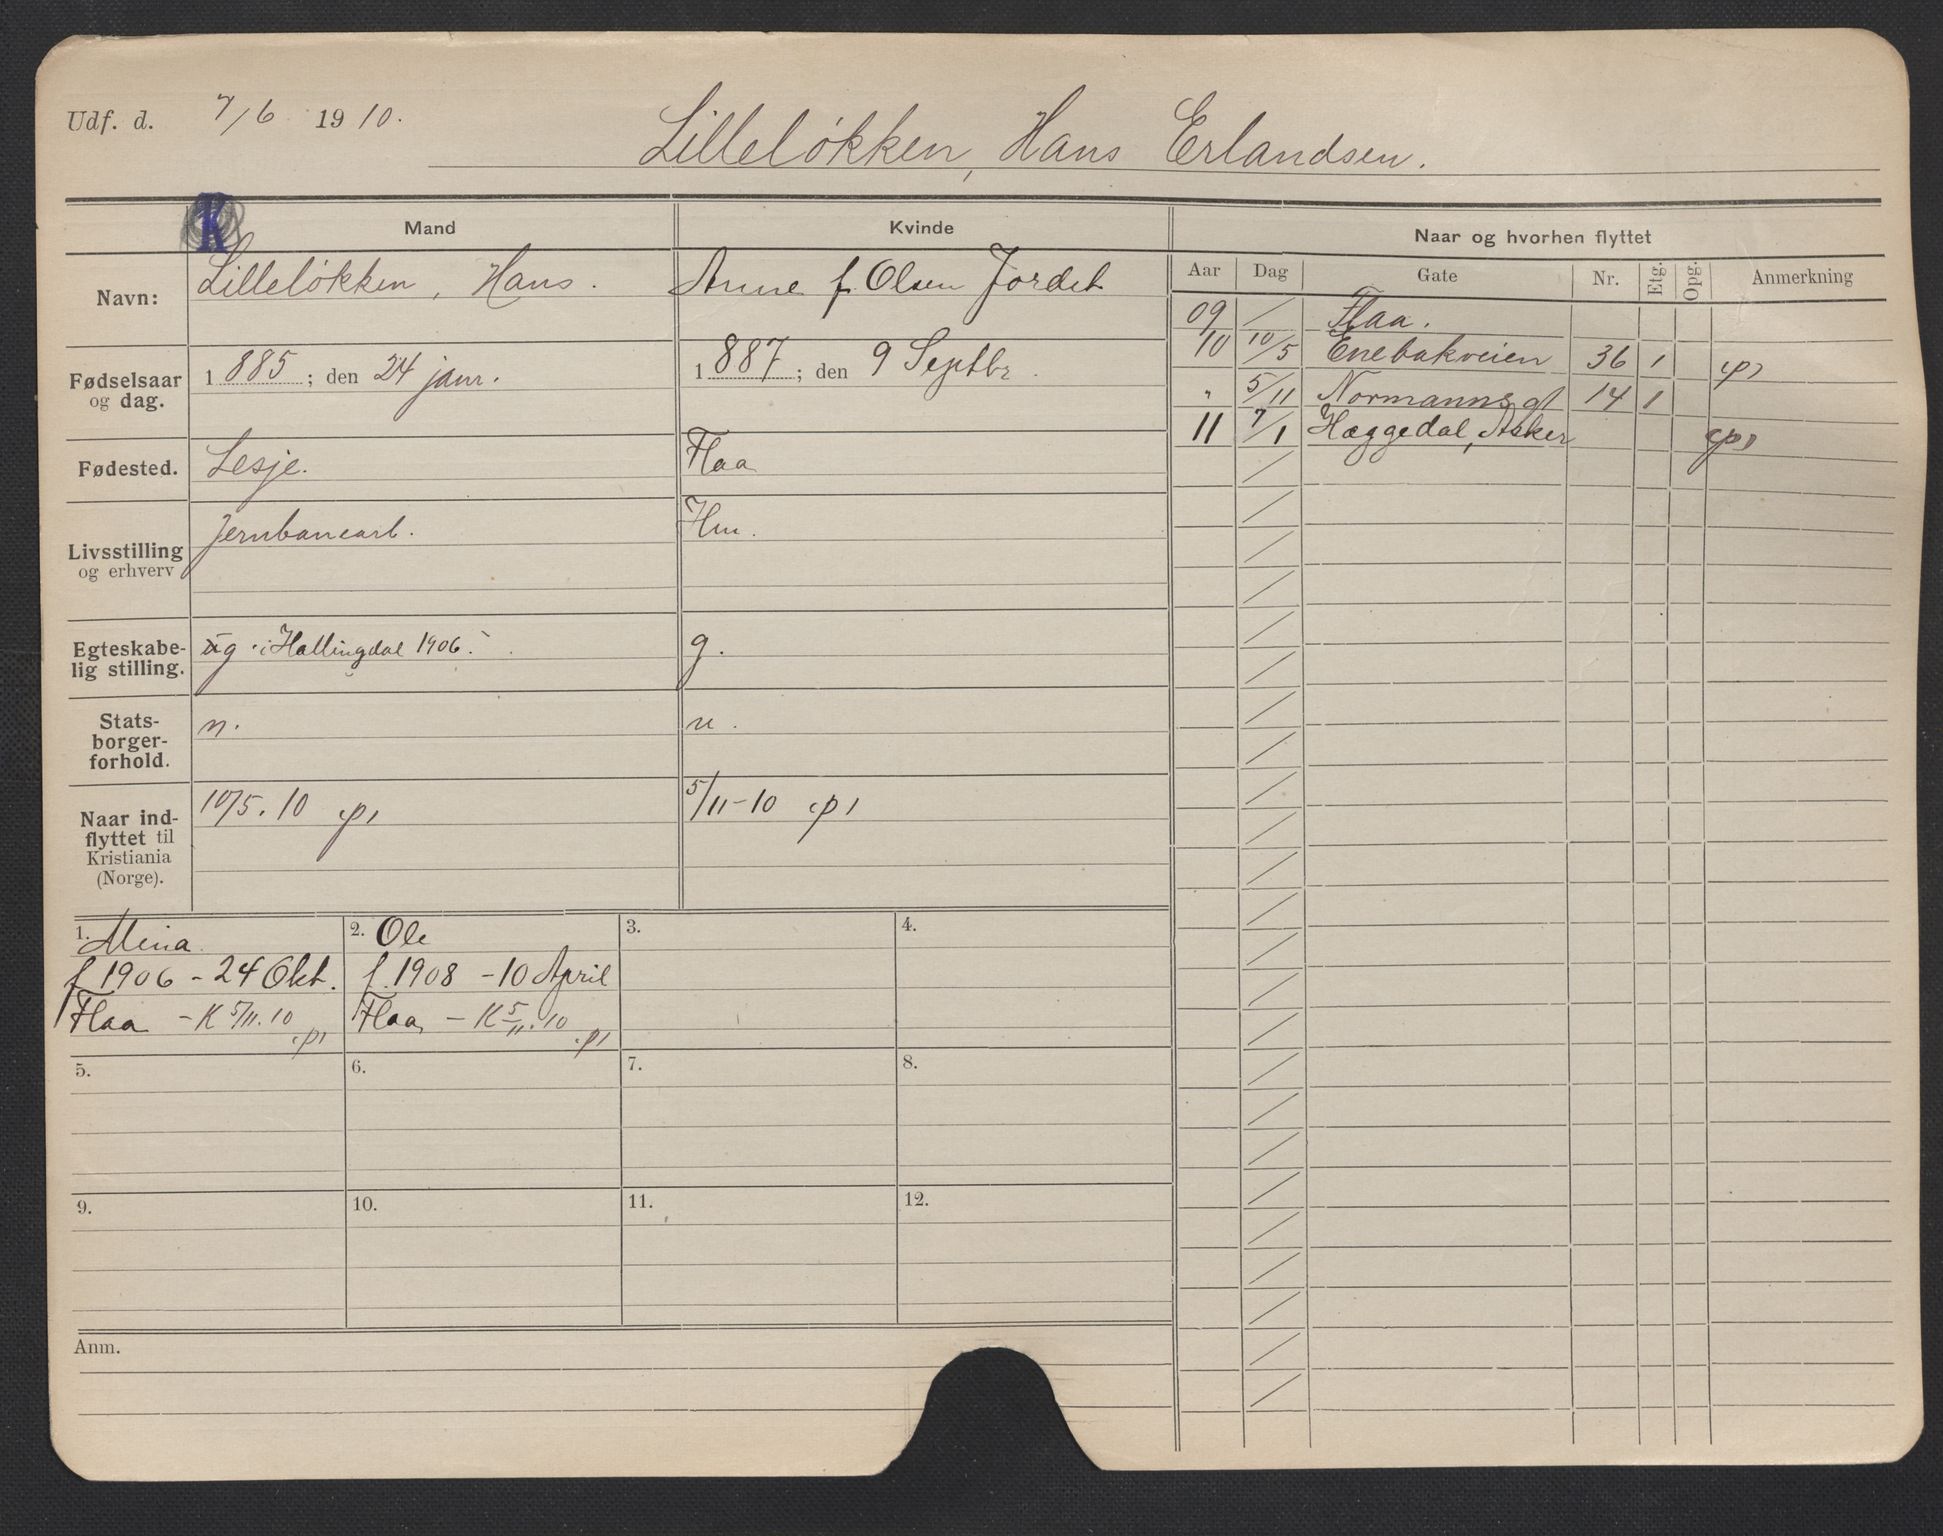 Udf. d. 7/6 1910.
Lilleløkken, Hans Erlandsen.
K
Mand Kvinde Naar og hvorhen flyttet
Aar Dag Gate Nr. Etg. Opg. Anmerkning
Navn: Lilleløkken, Hans. Anne f Olsen Jordet
Fødselsaar og dag. 1885; den 24 janr. 1887; den 9 Septbr.
Fødested. Lesje. Flaa
Livsstilling og erhverv Jernbanearb. Hm.
Egteskabe-
lig stilling. g i Hallingdal 1906. g.
Stats-
borger-
forhold. n. n.
Naar ind-
flyttet til
Kristiania
(Norge). 10/5.10 5/11-10
09 / Flaa.
10 10/5 Enebakveien 36 1
" 5/11 Normannsgt 14 1
11 7/1 Hæggedal, Asker
1. Mina
f 1906 - 24 Okt.
Flaa - K 5/11.10
2. Ole
f. 1908 - 10 April
Flaa, - K 5/11.10
3.
4.
5.
6.
7.
8.
9.
10.
11.
12.
Anm.